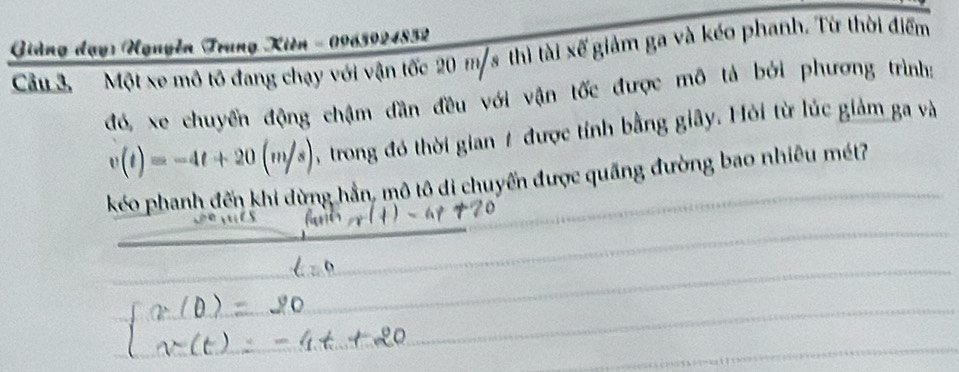 Giảng dạy: Nguyễn Trung Kiên - 0963924832
Câu 3. Một xe mô tô đang chạy với vận tốc 20 m/s thì tài xế giảm ga và kéo phanh. Từ thời điểm
đó, xe chuyển động chậm dần đều với vận tốc được mô tả bởi phương trình:
v(t) = -4t + 20 (m/s), trong đó thời gian t được tính bằng giây. Hỏi từ lúc giảm ga và
kéo phanh đến khi dừng hẳn, mô tô di chuyển được quãng đường bao nhiêu mét?
20 m/s v(t) - 4t + 20
t = 0
{ v(0) = 20
v(t) = -4t + 20